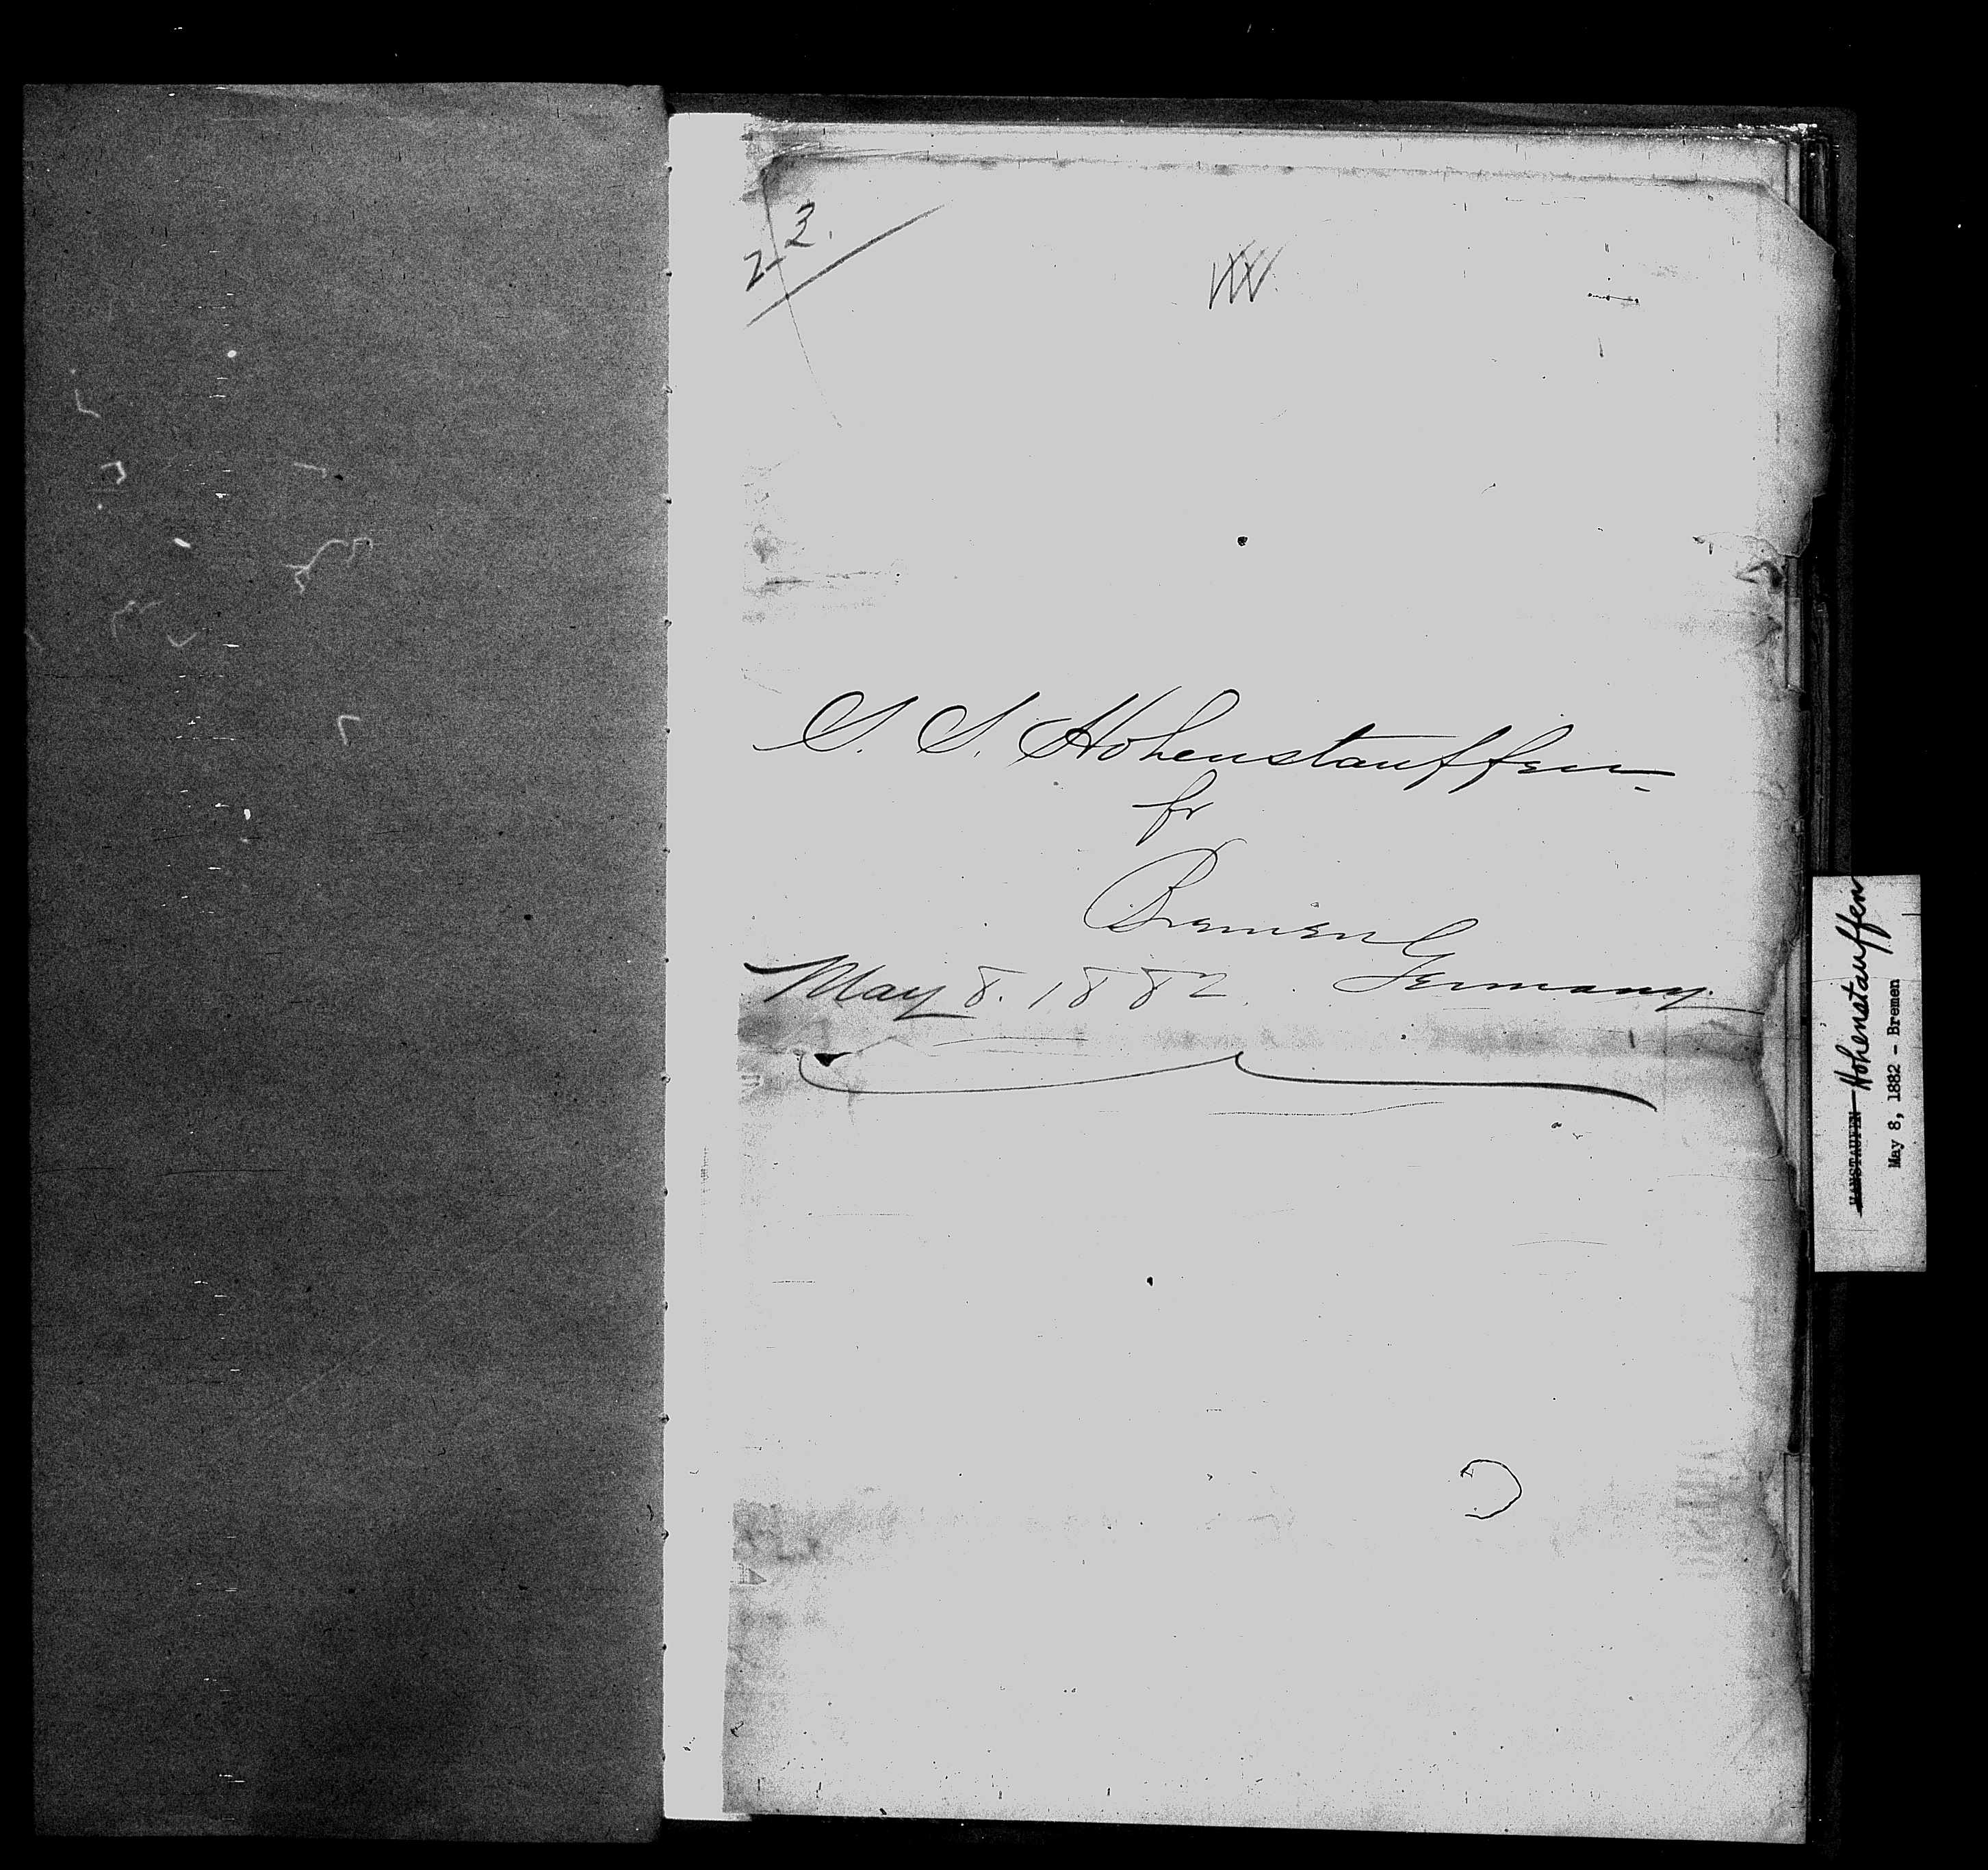 2 3.
S. S. Hohenstauffen
fr
Bremen
May 8. 1882. Germany.
HANSTAUFEN Hohenstauffen
May 8, 1882 - Bremen